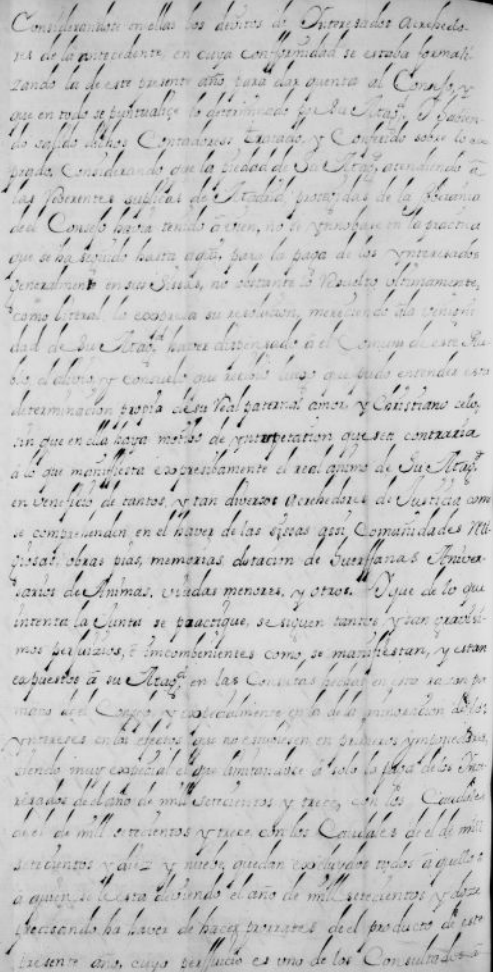 Considerandose en ellas los devitos de Ynteresados Acrehedo-
res de la antecedente, en cuya conformidad se estaba formali-
zando la de este presente año para dar quenta al Consejo, y
que en todo se puntualize lo determinado por Su Magd. Y havien-
do salido dichos Contadores tratado, y Conferido sobre lo ex-
presado, Considerando que la piedad de Su Magd. atendiendo â
las Reverentes suplicas de Madrid, protexidas de la
de el Consejo havia tenido â vien, no se ynnobase en la practica
que se ha seguido hasta aqui, para la paga de los Ynteresados
generalmente en sus Sisas, no obstante lo Resuelto ultimamente,
como literal lo expresa su resolucion, mereciendo â la venigni-
dad de Su Magd. haver dispensado â el Comun de este Pue-
blo, el alivio, y consuelo que recivio luego que pudo entender esta
determinacion propia de su Real paternal amor, y Christiano celo,
sin que en ella haya motivo de ynterpretacion que sea contraria
â lo que manifiesta expresibamente el real animo de Su Magd.
en veneficio de tantos, y tan diversos Acrehedores de Justicia como
se comprehenden en el haver de las sissas assi Comunidades Reli-
giosas, obras pias, memorias, dotacion de Huerfanas Aniver-
sarios de Animas, viudas menores, y otros. Y que de lo que
intenta la Junta se practique, se siguen tantos, y tan gravisi-
mos perjuizios, ê imcombenientes como se manifiestan, y estan
expuestos â su Magd. en las Consultas hechas en esta razon por
mano de el Consejo, y expecialmente en la de la minoracion de los
yntereses en los efectos que no estubiesen en primeros ymponedores,
siendo muy expecial el que limitandose â solo la paga de los Ynte-
resados de el año de mill setecientos y trece, con los Caudales
de el de mill setecientos y trece con los Caudales de el de mill
setecientos y diez y nueve, quedan excluydos todos âquellos
a quien se le esta deviendo el año de mill setecientos y doze
precisando ha haver de hacer prorrates de el producto de este
presente año, cuyo perjuicio es uno de los Consultados